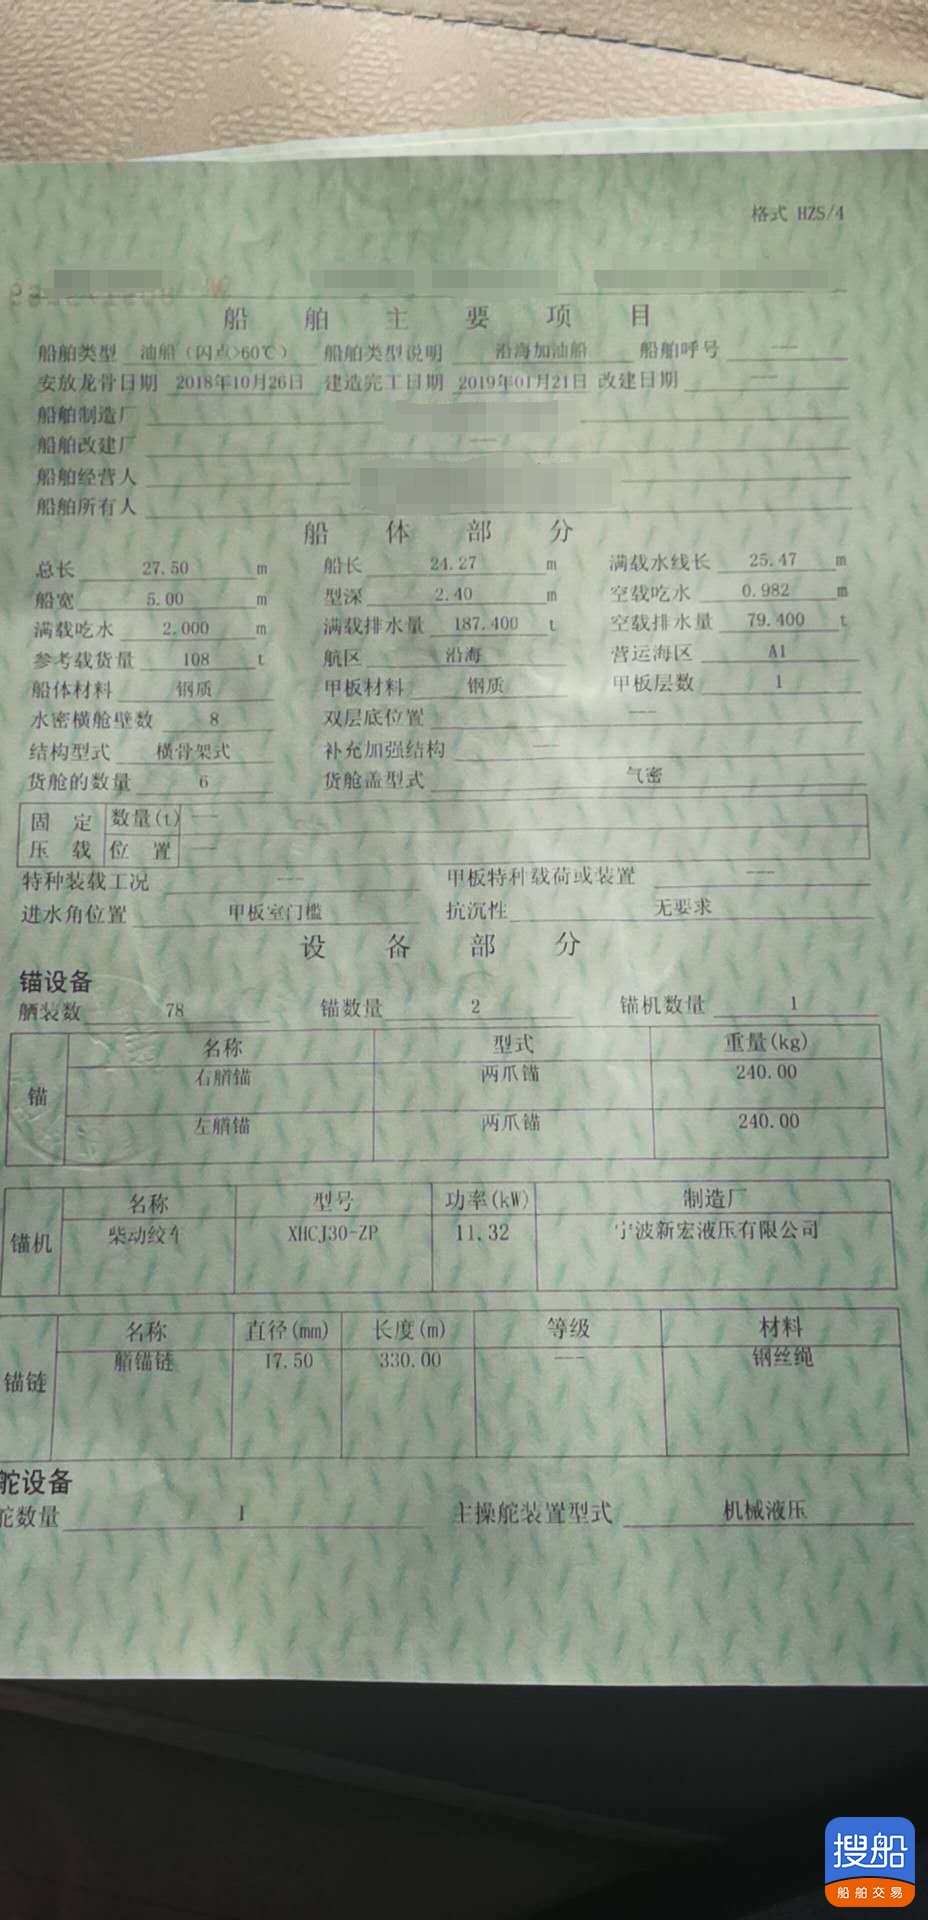 格式 HZS/4
船舶主要项目
船舶类型 油船（闪点>60℃） 船舶类型说明 沿海加油船 船舶呼号 ---
安放龙骨日期 2018年10月26日 建造完工日期 2019年01月21日 改建日期 ---
船舶制造厂
船舶改建厂 ---
船舶经营人
船舶所有人
船体部分
总长 27.50 m 船长 24.27 m 满载水线长 25.47 m
船宽 5.00 m 型深 2.40 m 空载吃水 0.982 m
满载吃水 2.000 m 满载排水量 187.400 t 空载排水量 79.400 t
参考载货量 108 t 航区 沿海 营运海区 A1
船体材料 钢质 甲板材料 钢质 甲板层数 1
水密横舱壁数 8 双层底位置 ---
结构型式 横骨架式 补充加强结构 ---
货舱的数量 6 货舱盖型式 气密
固定 数量(t) ---
压载 位置 ---
特种装载工况 --- 甲板特种载荷或装置 ---
进水角位置 甲板室门槛 抗沉性 无要求
设备部分
锚设备
舾装数 78 锚数量 2 锚机数量 1
名称 型式 重量(kg)
锚
右艏锚 两爪锚 240.00
左艏锚 两爪锚 240.00
名称 型号 功率(kW) 制造厂
锚机
柴动绞车 XHCJ30-ZP 11.32 宁波新宏液压有限公司
名称 直径(mm) 长度(m) 等级 材料
锚链
艏锚链 17.50 330.00 --- 钢丝绳
舵设备
舵数量 1 主操舵装置型式 机械液压
搜船
船舶交易